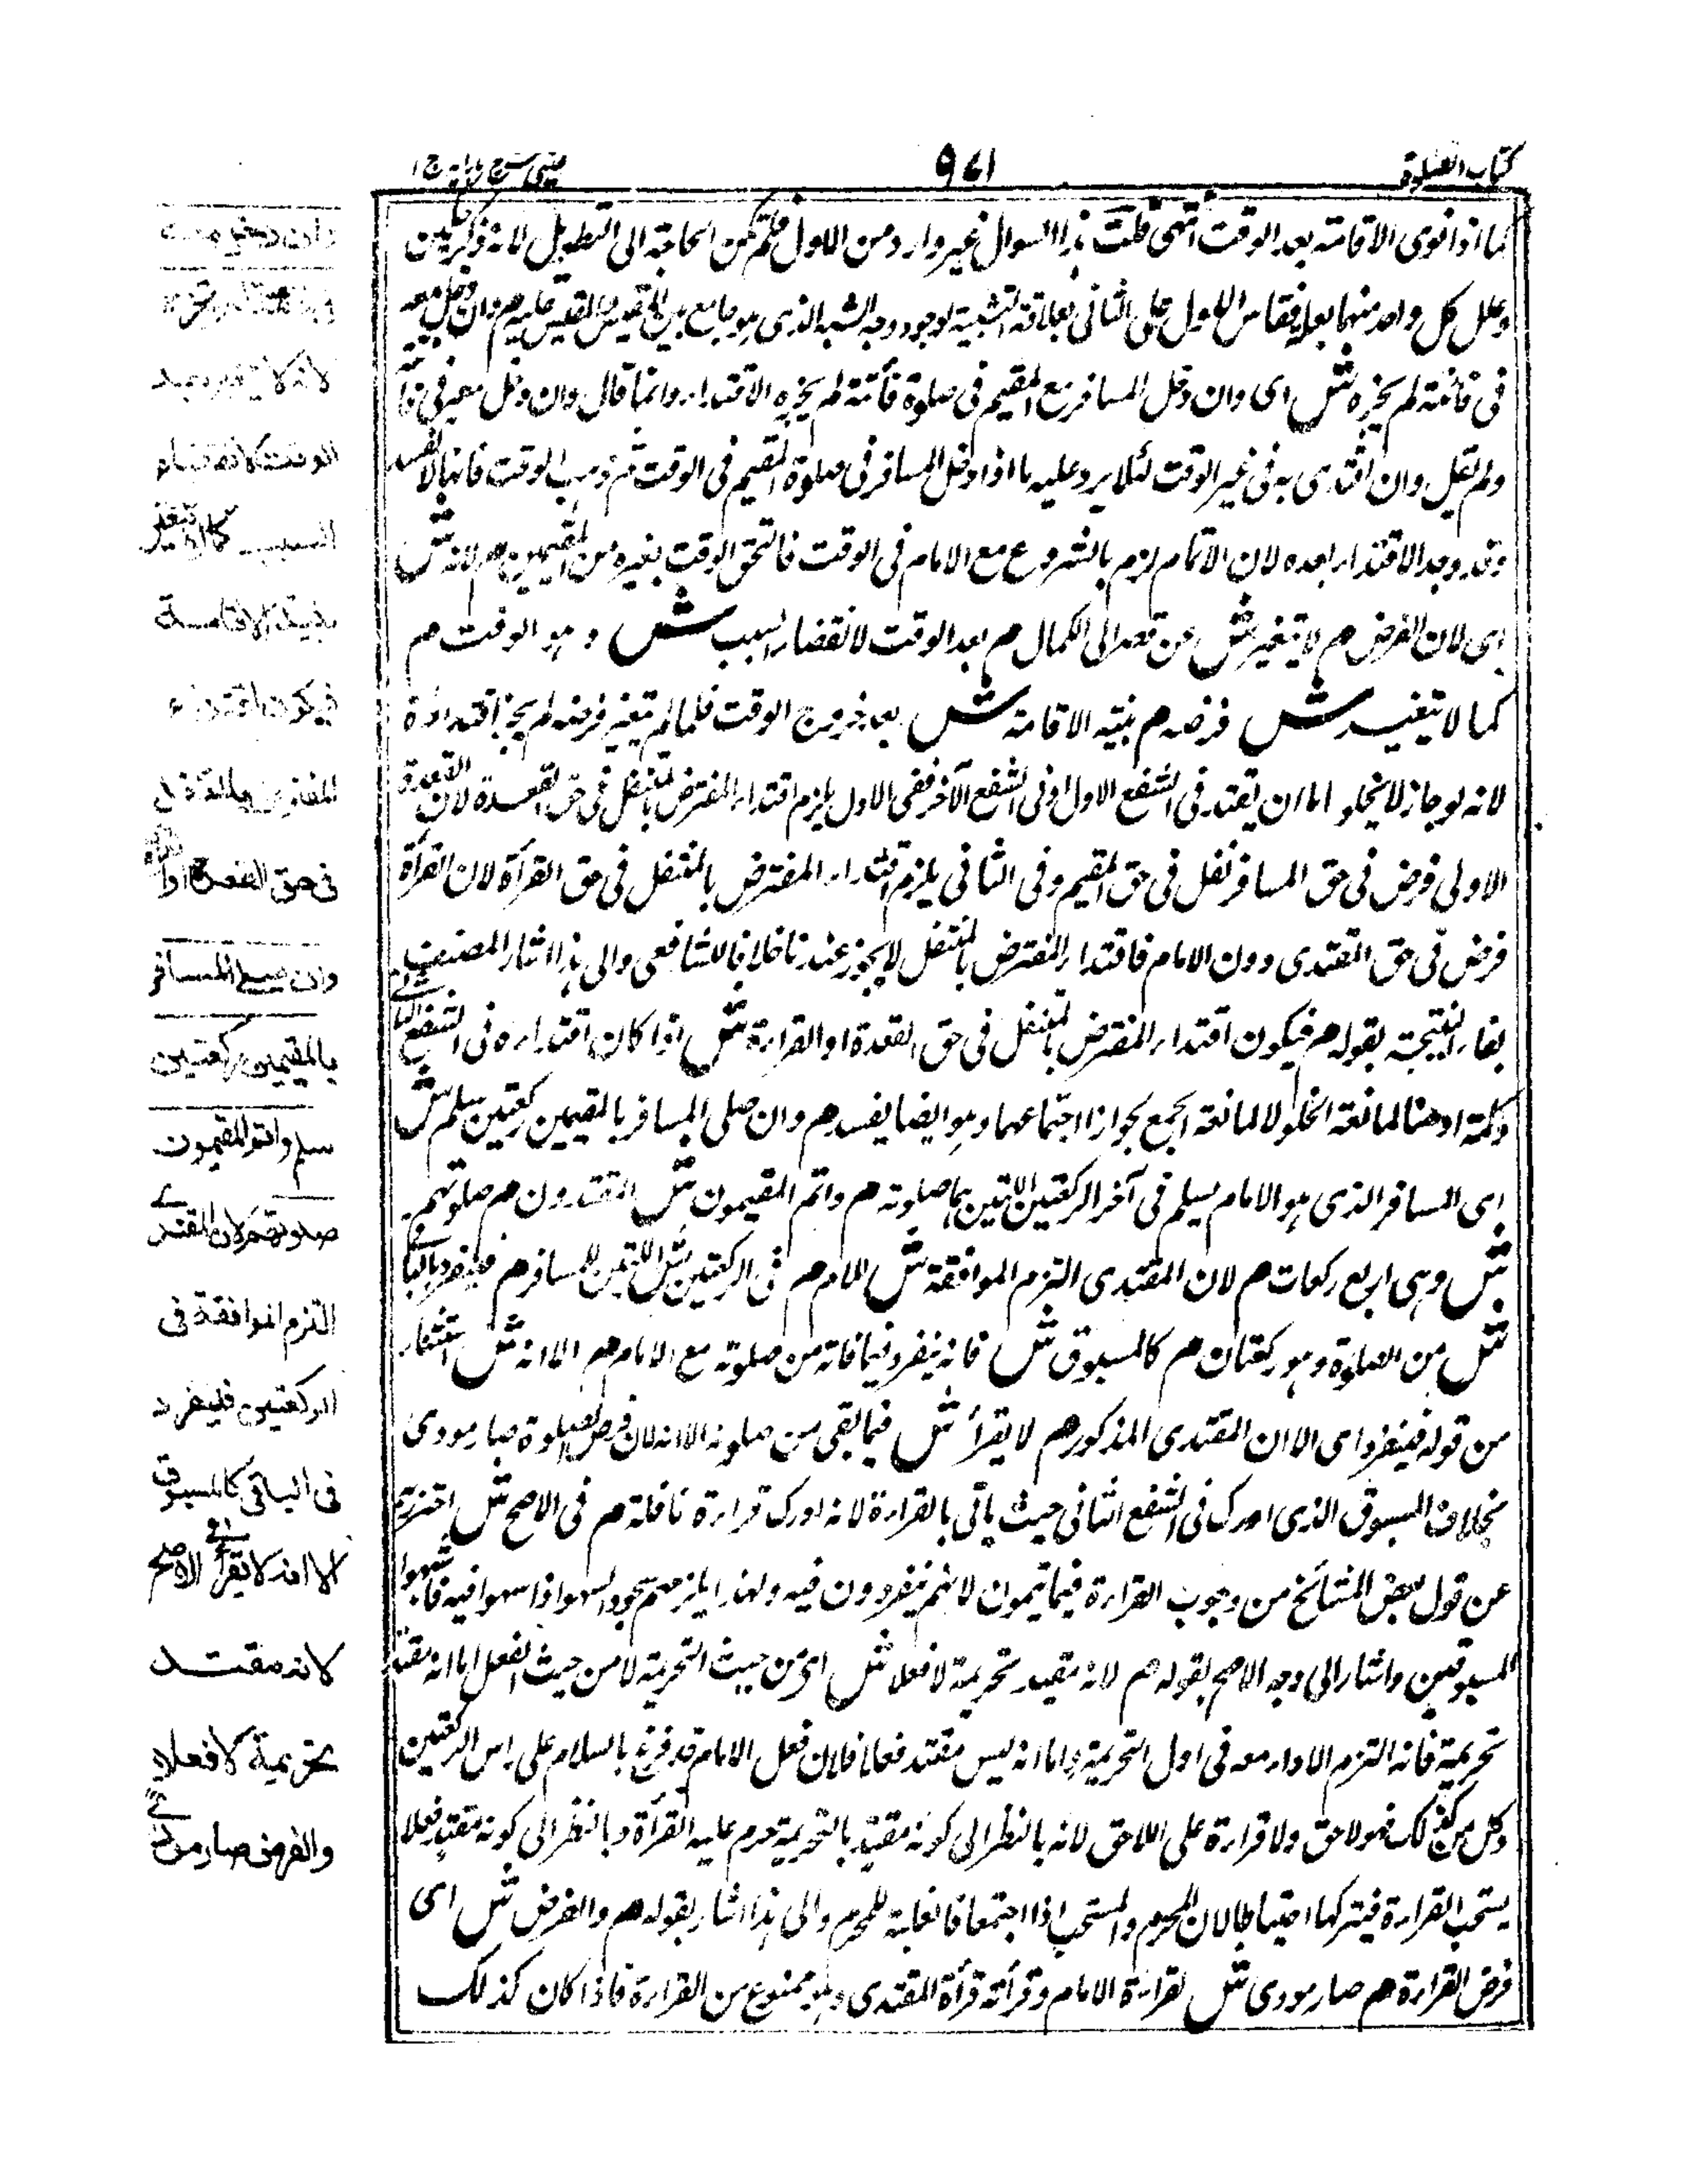 كتاب الصلوة
٩٧١
عینی شرح هدایه ج ١
كما اذا نوى الاقامة بعد الوقت انتهى قلت هذا السوال غير وارد من الاول فلم تكن الحاجة الى التطويل لانه ذكر
وعلل كل واحد منهما بعلة فقاس الاول على الثانى بعلاقة التشبية لوجود وجه الشبه الذى هو جامع بين المقيس والمقيس عليه م وان دخل معه
فى فائتة لم يجزه ش اى وان دخل المسافر مع المقيم فى صلوة فائتة لم يجزه الاقتداء وانما قال وان دخل معه فى فائتة
ولم يقل وان اقتدى به فى غير الوقت لئلا يرد عليه ما اذا دخل المسافر فى صلوة المقيم فى الوقت ثم ذهب الوقت فانها لا تفسد
وقد وجد الاقتداء بعده لان الاتمام لزم بالشروع مع الامام فى الوقت فالتحق الوقت بغيره من المقيمين م لانه ش
اى لان الفرض م لا يتغير ش من قصد الى الكمال م بعد الوقت لانقضاء السبب ش وهو الوقت م
كما لا يتغير ش فرضه م بنية الاقامة ش بعد خروج الوقت فلما لم يتغير فرضه لم يجز اقتداؤه
لانه لو جاز لا يخلو اما ان يقتدى فى الشفع الاول او فى الشفع الآخر ففى الاول يلزم اقتداء المفترض بالمتنفل فى حق القعدة لان القعدة
الاولى فرض فى حق المسافر نفل فى حق المقيم وفى الثانى يلزم اقتداء المفترض بالمتنفل فى حق القرأة لان القرأة
فرض فى حق المقتدى دون الامام فاقتداء المفترض بالمتنفل لا يجوز عندنا خلافا للشافعى والى هذا اشار المصنف
بفاء النتيجة بقوله م فيكون اقتداء المفترض بالمتنفل فى حق القعدة او القراءة ش اذا كان اقتداءه فى الشفع الثانى
وكلمة او هنا لمانعة الخلو لا لمانعة الجمع لجواز اجتماعهما وهو ايضا يفسد م وان صلى المسافر بالمقيمين ركعتين سلم ش
اى المسافر الذى هو الامام يسلم فى آخر الركعتين الاتين هما صلوته م واتم المقيمون ش المقتدون م صلوتهم
ش وهى اربع ركعات م لان المقتدى التزم الموافقة ش للامام م فى الركعتين ش اللتين للمسافر م فينفرد بالباقى
ش من الصلوة وهو ركعتان م كالمسبوق ش فانه ينفرد فيما فاته من صلوته مع الامام م الا انه ش استثناء
من قوله فينفرد اى الا ان المقتدى المذكور م لا يقرأ ش فيما بقى من صلوته الا انه لان فرض الصلوة صار مودى
بخلاف المسبوق الذى ادرك فى الشفع الثانى حيث يأتى بالقراءة لانه ادرك قراءة نافلة م فى الاصح ش احترز به
عن قول بعض المشائخ من وجوب القراءة فيما يتمون لانهم منفردون فيه ولهذا يلزمهم سجود السهو اذا سهوا فيه فاشبهوا
المسبوقين واشار الى وجه الاصح بقوله م لانه مقتد تحريمة لا فعلا ش اى من حيث التحريمة لا من حيث الفعل اما انه مقتد
تحريمة فانه التزم الاداء معه فى اول التحريمة واما انه ليس مقتد فعلا فلان فعل الامام قد فرغ بالسلام على راس الركعتين
وكل من كذلك فهو لاحق ولا قراءة على اللاحق لانه بالنظر الى كونه مقتد بالتحريمة حرم عليه القرأة وبالنظر الى كونه مقتد فعلا
يستحب القراءة فيتركها احتياطا لان المحرم والمستحب اذا اجتمعا فالغلبة للمحرم والى هذا اشار بقوله م والفرض ش اى
فرض القراءة م صار مودى ش لقراءة الامام وقرأته قرأة المقتدى وهو ممنوع من القراءة فاذا كان كذلك
وان دخل معه
لانه لا يتغير بعد
الوقت لانقضاء
السبب كما لا يتغير
بنية الاقامة
فيكون اقتداء
المفترض بالمتنفل
فى حق القعدة او
وان صلى المسافر
بالمقيمين ركعتين
سلم واتم المقيمون
صلوتهم لان المقتدى
التزم الموافقة فى
الركعتين فينفرد
فى الباقى كالمسبوق
الا انه لا يقرأ فى الاصح
لانه مقتد
تحريمة لا فعلا
والفرض صار مودى